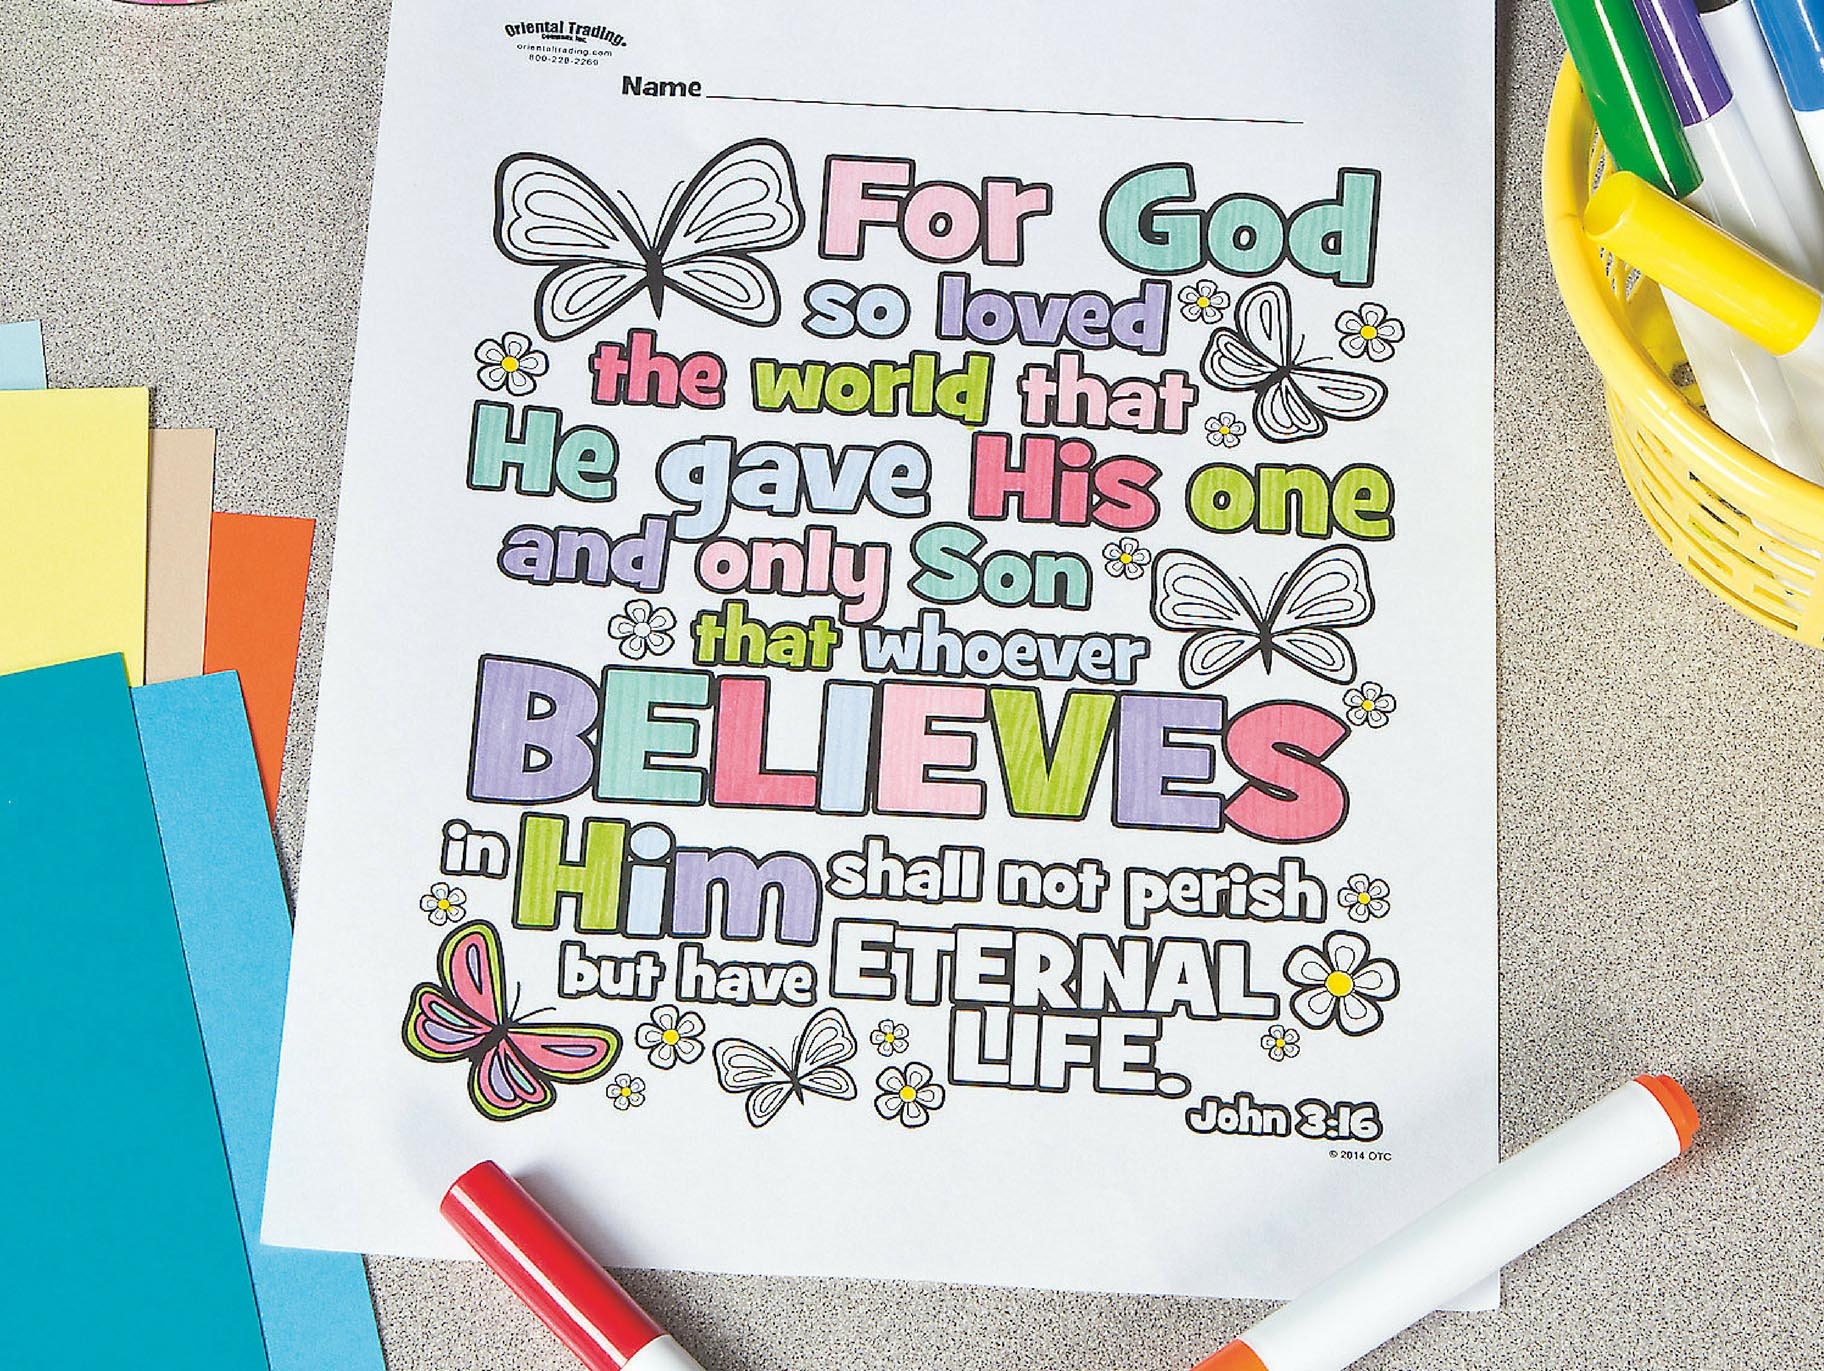 Oriental Trading
Company, Inc.
orientaltrading.com
800-228-2269
Name
For God
so loved
the world that
He gave His one
and only Son
that whoever
BELIEVES
in Him shall not perish
but have ETERNAL
LIFE.
John 3:16
© 2014 OTC